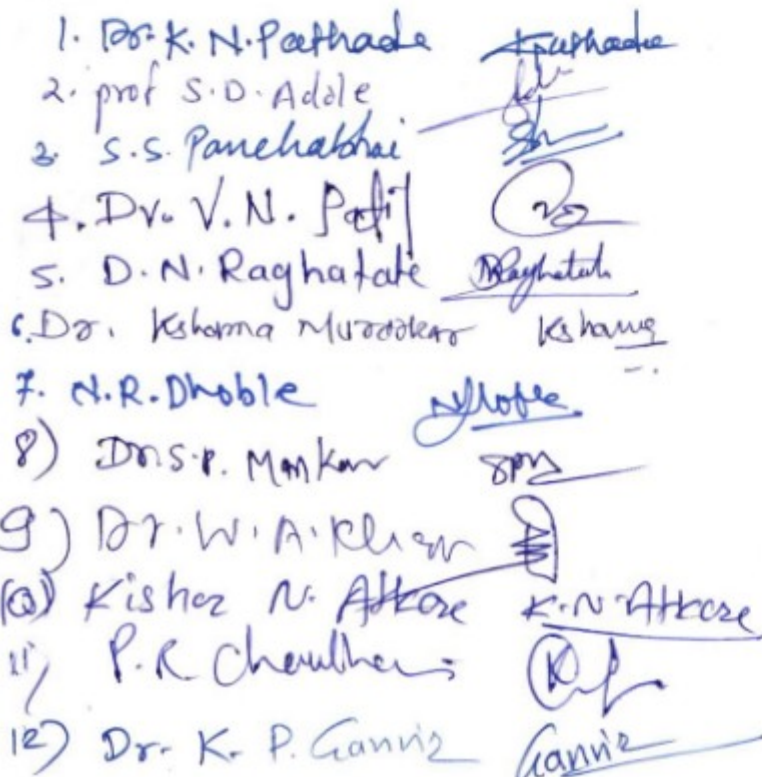 1. Dr. K. N. Pathade Kpathade
2. prof S.D. Adole
3. S.S. Panchabhai
4. Dr. V. N. Patil
5. D. N. Raghatate DRaghatate
6. Dr. Kshama Murarkar Kshama
7. N.R. Dhoble NDhoble
8) Dr. S.P. Mankar SPM
9) Dr. W. A. Khan
10) Kishor N. Atkare K.N. Atkare
11) P.R. Chaudhari
12) Dr. K. P. Ganvir Ganvir